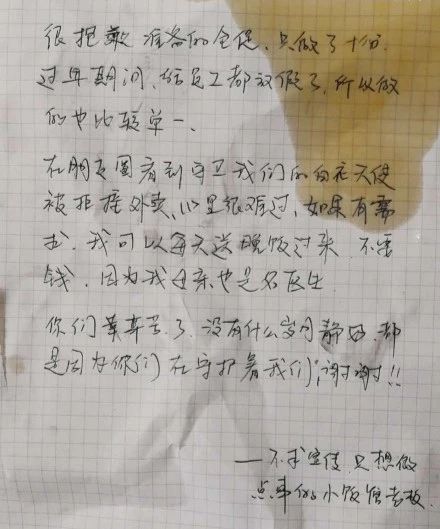 很抱歉 准备的仓促，只做了十份.
过年期间，给员工都放假了，所以做
的也比较单一、
在朋友圈看到守卫我们的白衣天使
被拒接外卖，心里很难过，如果有需
求，我可以每天送晚饭过来 不要
钱，因为我母亲也是名医生
你们辈辛苦了，没有什么岁月静好，都
是因为你们在守护着我们，谢谢!!
——不求宣传 只想做
点事的小饭馆老板.